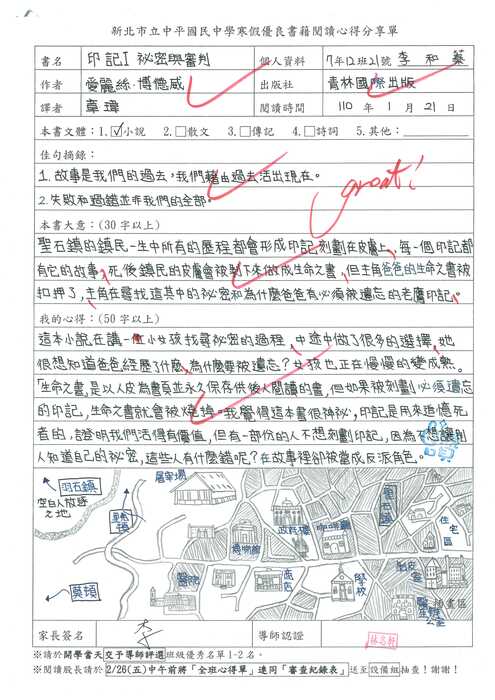 新北市立中平國民中學寒假優良書籍閱讀心得分享單
書名 印記I 祕密與審判 個人資料 7年12班21號 李和蓁
作者 愛麗絲·博德威 出版社 青林國際出版
譯者 韋瑋 閱讀時間 110 年 1 月 21 日
本書文體：1.☑小說 2.□散文 3.□傳記 4.□詩詞 5.其他：
佳句摘錄：
1. 故事是我們的過去，我們藉由過去活出現在。
great!
2. 失敗和過錯並非我們的全部。
本書大意：(30 字以上)
聖石鎮的鎮民一生中所有的歷程都會形成印記刻劃在皮膚上，每一個印記都
有它的故事，死後鎮民的皮膚會被剝下來做成生命之書，但主角爸爸的生命之書被
扣押了，主角在尋找這其中的祕密和為什麼爸爸有必須被遺忘的老鷹印記。
我的心得：(50 字以上)
這本小說在講一位小女孩找尋秘密的過程，中途中做了很多的選擇，她
很想知道爸爸經歷了什麼，為什麼要被遺忘？女孩也正在慢慢的變成熟。
「生命之書」是以人皮為書頁並永久保存供後人閱讀的書，但如果被刻劃必須遺忘
的印記，生命之書就會被燒掉。我覺得這本書很神祕，印記是用來追憶死
者的，證明我們活得有價值，但有一部份的人不想刻劃印記，因為不想讓別
人知道自己的秘密，這些人有什麼錯呢？在故事裡卻被當成反派角色。
羽石鎮
空白人放逐之地
居宰場
聖石鎮
政府
博物館
中心
住宅區
莫頓
醫院
商店
學校
皮室
辦公室
插畫區
家長簽名 李 導師認證
※請於開學當天交予導師評選班級優秀名單 1-2 名。
※請閱股長請於 2/26(五)中午前將「全班心得單」連同「審查紀錄表」送至設備組抽查！謝謝！